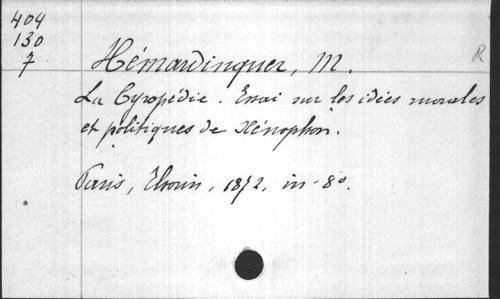 404
130
7
Hémardinquer, M.
R
La Cyropédie. Essai sur les idées morales
et politiques de Xénophon.
Paris, Thorin, 1872, in-8o.